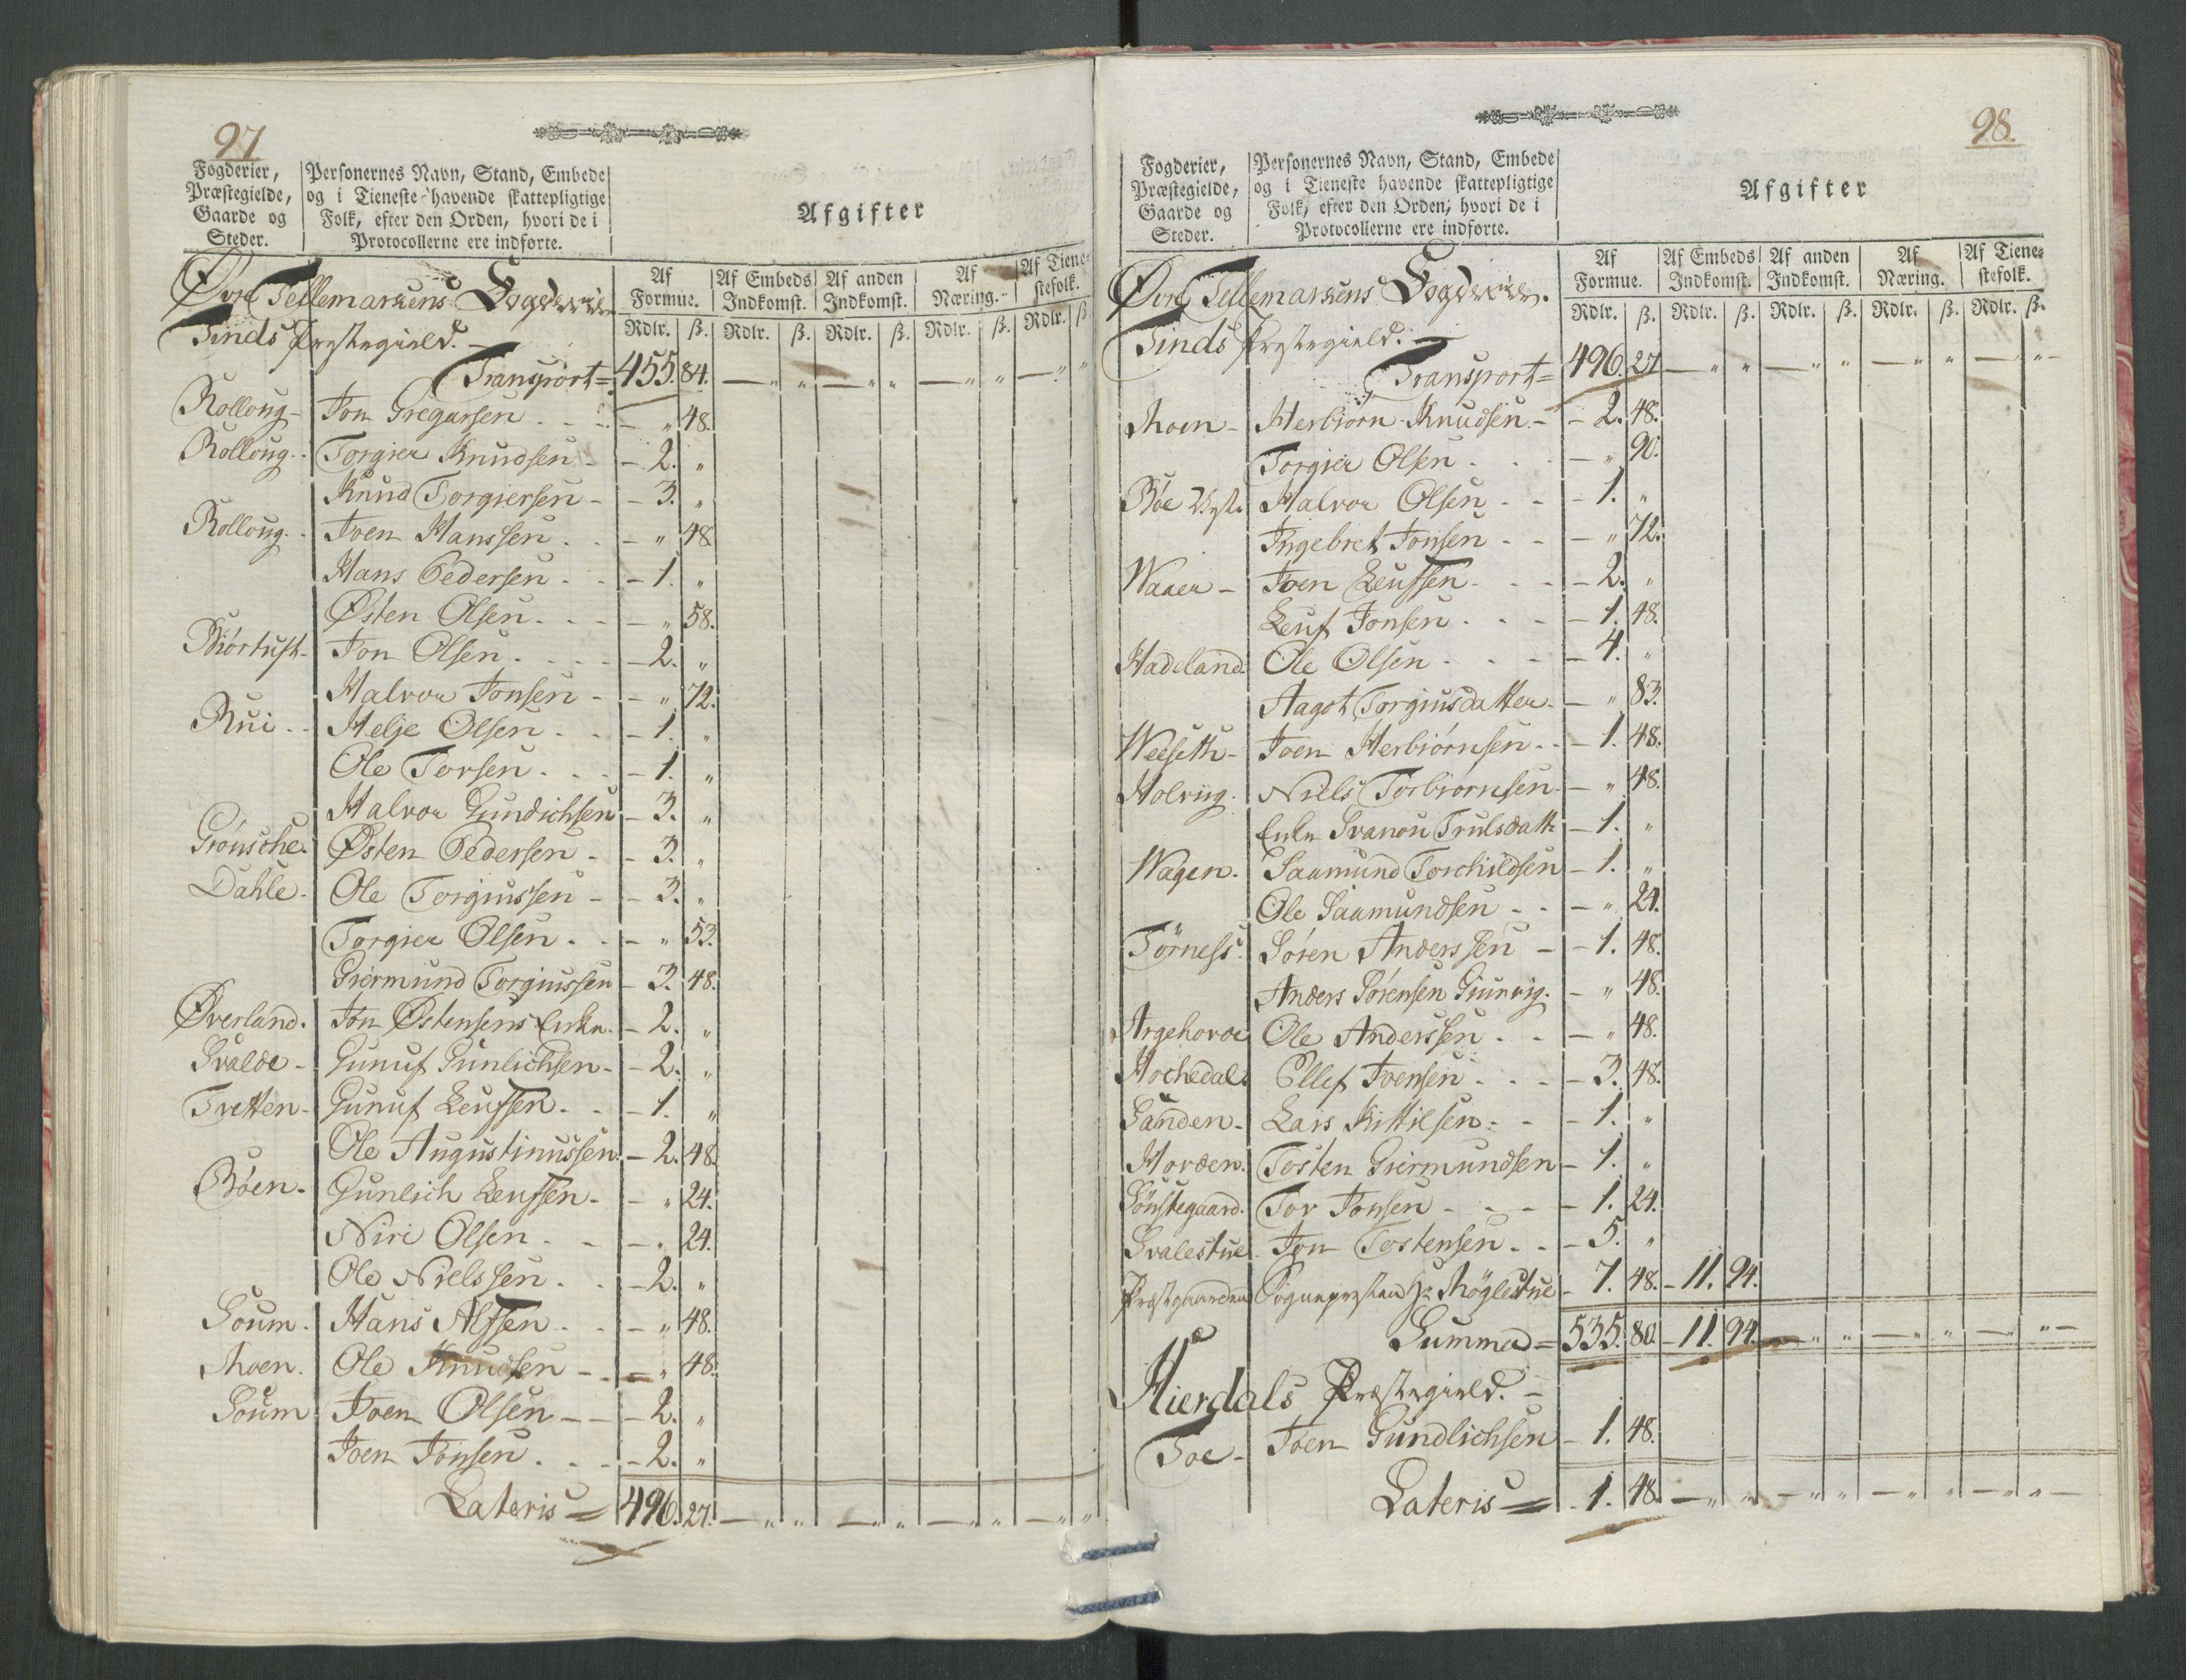 97
Fogderier, Præstegielde, Gaarde og Steder.
Personernes Navn, Stand, Embede og i Tieneste-havende skattepligtige Folk, efter den Orden, hvori de i Protocollerne ere indførte.
Afgifter
Af Formue. Af Embeds Indkomst. Af anden Indkomst. Af Næring. Af Tienestefolk.
Rdlr. ß. Rdlr. ß. Rdlr. ß. Rdlr. ß. Rdlr. ß.
Øvre Tellemarkens Fogderie
Tinds Præstegield.
Transport = 455. 84. — „ „ — „ „ — „ „ — „ „
Rolloug - Jon Gregarsen - „ 48.
Rolloug - Torgier Knudsen - 2. „
Knud Torgiersen - 3. „
Rolloug - Joen Hanssen - „ 48
Hans Pedersen - 1. „
Østen Olsen - „ 58.
Biørtuft - Jon Olsen - 2. „
Halvor Jonsen - „ 72.
Rui - Helje Olsen - 1. „
Ole Torsen - 1. „
Halvor Gundichsen - 3. „
Grøusche. Østen Pedersen - 3. „
Dahle - Ole Torgiussen - 3. „
Torgier Olsen - „ 53.
Giermund Torgiussen - 3. 48.
Øverland. Jon Østensens Enke - 2. „
Svalde - Gunuf Gunlichsen - 2. „
Tvetten - Gunuf Leufsen - 1. „
Ole Augustinussen - 2. 48.
Bøen - Gunlich Leufsen - „ 24.
Niri Olsen - „ 24.
Ole Nielssen - 2. „
Soum. Hans Alfsen - „ 48.
Moen. Ole Knudsen - „ 48.
Soum Joen Olsen - 2. „
Joen Jonsen - 2. „
Lateris = 496. 27. — „ „ — „ „ — „ „ — „ „
98.
Fogderier, Præstegielde, Gaarde og Steder.
Personernes Navn, Stand, Embede og i Tieneste havende skattepligtige Folk, efter den Orden, hvori de i Protocollerne ere indførte.
Afgifter
Af Formue. Af Embeds Indkomst. Af anden Indkomst. Af Næring. Af Tienestefolk.
Rdlr. ß. Rdlr. ß. Rdlr. ß. Rdlr. ß. Rdlr. ß.
Øvre Tellemarkens Fogderie.
Tinds Præstegield.
Transport = 496. 27 — „ „ — „ „ — „ „ — „ „
Moen - Herbiørn Knudsen - 2. 48.
Torgier Olsen - „ 90.
Bøe Vestr Halvor Olsen - 1. „
Ingebret Jonsen - „ 72.
Waaer - Joen Leufsen - 2. „
Leuf Jonsen - 1. 48.
Hadeland. Ole Olsen - 4. „
Aagot Torgiusdatter - „ 83.
Weeseth - Joen Herbiørnsen - 1. 48.
Holviig. Niels Torbiørnsen - „ 48.
Enke Svanou Trulsdattr - 1. „
Wagen. Saamund Torchildsen - 1. „
Ole Saamundsen - „ 24.
Tørness. Søren Anderssen - 1. 48.
Anders Sørensen Giunvig. - „ 48.
Argehovde Ole Anderssen - „ 48.
Hochedal. Ellef Joensen - 3. 48.
Sanden - Lars Kittilsen - 1. „
Horden. Tosten Giermundsen - 1. „
Sønstegaard. Tor Jonsen - 1. 24.
Svalestue Jon Tostensen - 5. „
Præstgaarden Sognepresten Hr. Møglestue - 7. 48. - 11. 94.
Summa = 535. 80. - 11. 94. — „ „ — „ „ — „ „
Hierdals Præstegield.
Toe - Joen Gundlichsen - 1. 48.
Lateris = 1. 48. — „ „ — „ „ — „ „ — „ „